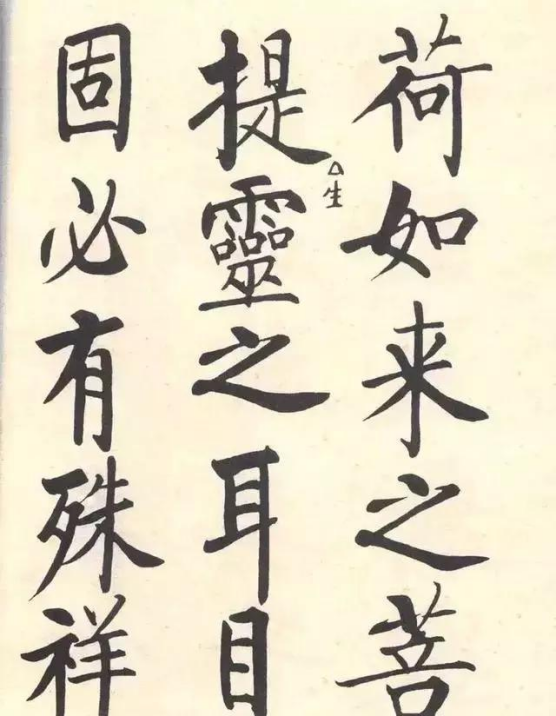 荷如来之菩
提△生靈之耳目
固必有殊祥